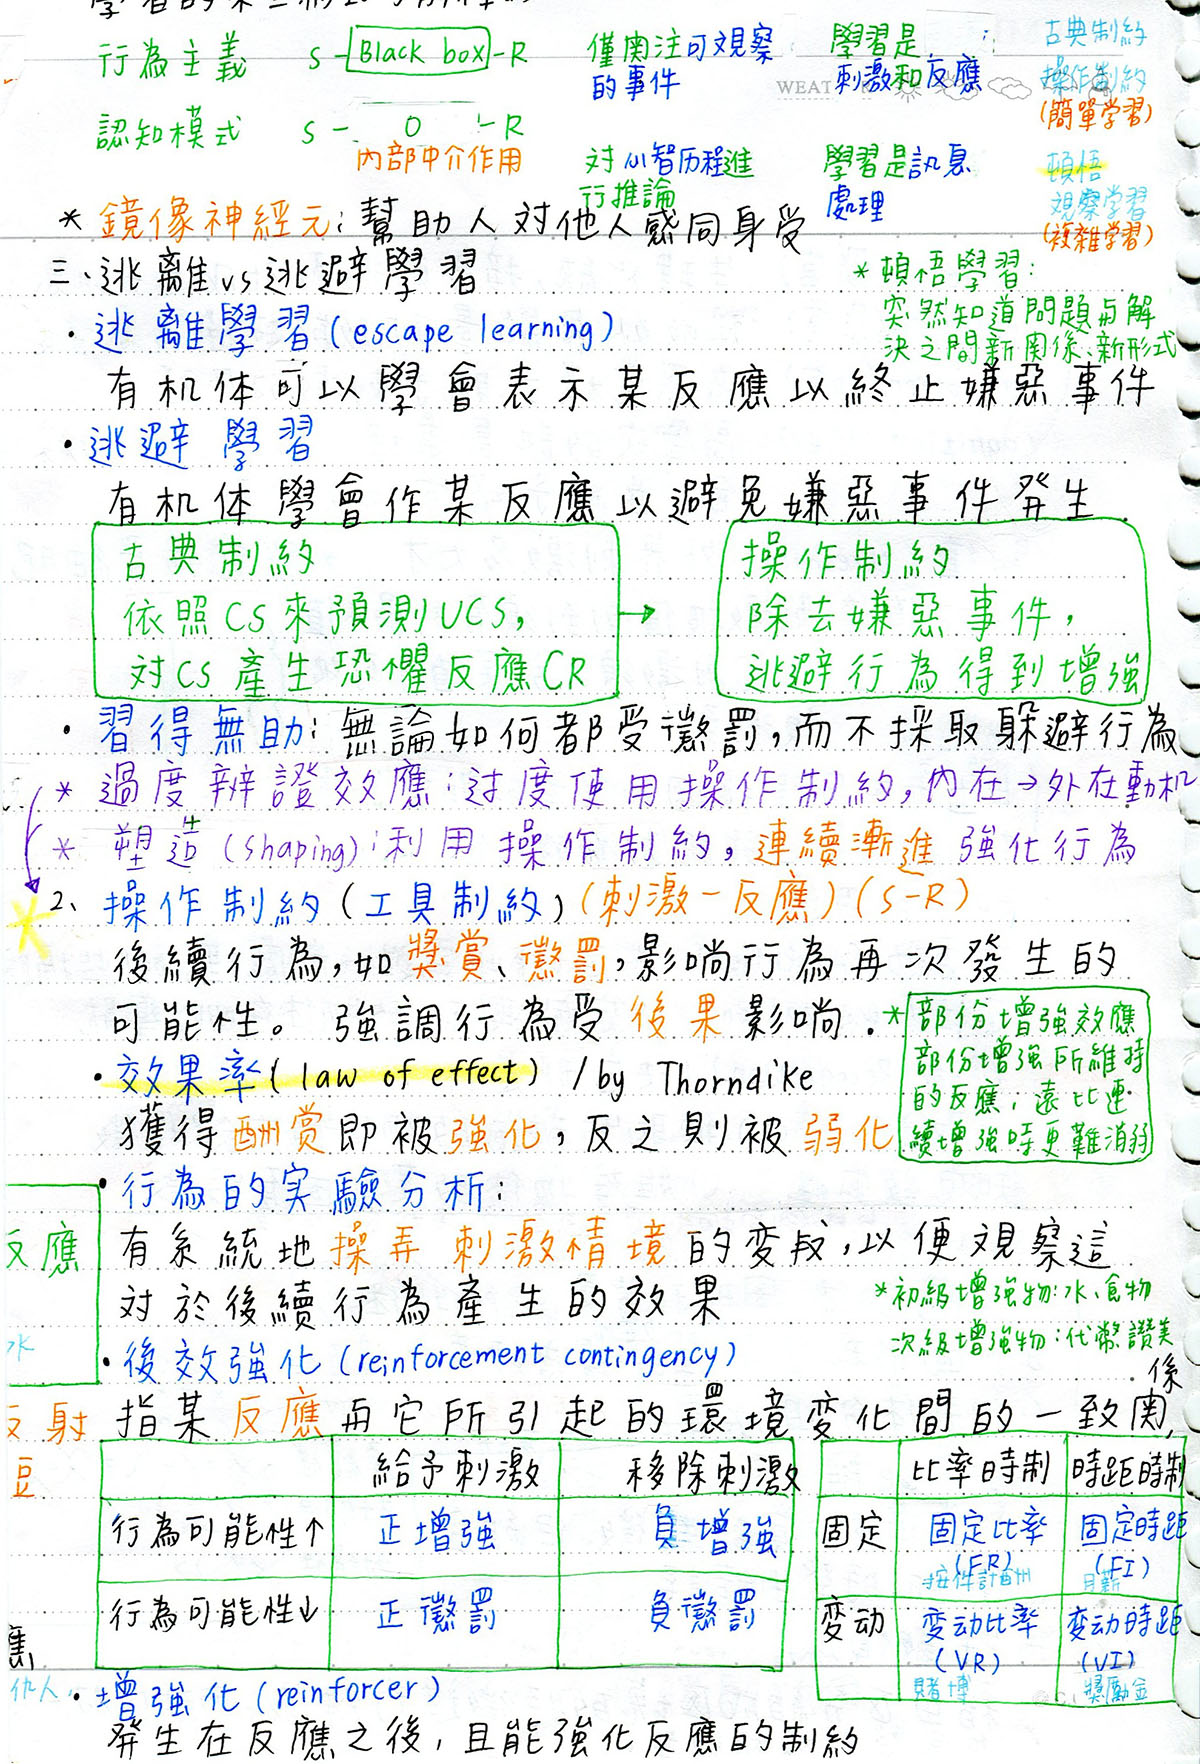 行為主義 S-Black box-R 僅関注可观察的事件 學習是刺激和反應 古典制約
操作制約
(簡單學習)
WEAT
認知模式 S-O-R 対心智历程進行推論 學習是訊息處理 頓悟
内部中介作用 观察学習
(複雜学習)
* 鏡像神經元:幫助人対他人感同身受
三、逃離vs逃避學習
* 頓悟學習:
突然知道問題与解
決之間新関係、新形式
・逃離學習(escape learning)
有机体可以學會表示某反應以終止嫌惡事件
・逃避學習
有机体學會作某反應以避免嫌惡事件発生
古典制約
依照CS來預測UCS,
対CS產生恐懼反應CR
→
操作制約
除去嫌惡事件,
逃避行為得到增強
・習得無助:無論如何都受懲罰,而不採取躲避行為
* 過度辨證效應:过度使用操作制約,内在→外在動机
* 塑造(shaping):利用操作制約,連續漸進強化行為
2、操作制約(工具制約)(刺激-反應)(S-R)
後續行為,如獎賞、懲罰,影响行為再次發生的
可能性。強調行為受後果影响.
*部份增強效應
部份增強所維持
的反應,遠比連
續增強時更難消弱
・效果率(law of effect) /by Thorndike
獲得酬賞即被強化,反之則被弱化
・行為的実驗分析:
有系統地操弄刺激情境的变歧,以便观察這
対於後續行為產生的效果
*初級增強物:水、食物
次級增強物:代幣讚美
・後效強化(reinforcement contingency)
指某反應与它所引起的環境変化間的一致関係
給予刺激 移除刺激
行為可能性↑ 正增強 負增強
行為可能性↓ 正懲罰 負懲罰
比率時制 時距時制
固定 固定比率(FR) 按件計酬 固定時距(FI) 月薪
変动 変动比率(VR) 賭博 変动時距(VI) 獎勵金
反應
水
反射
豆
應
他人,
・增強化(reinforcer)
発生在反應之後,且能強化反應的制約